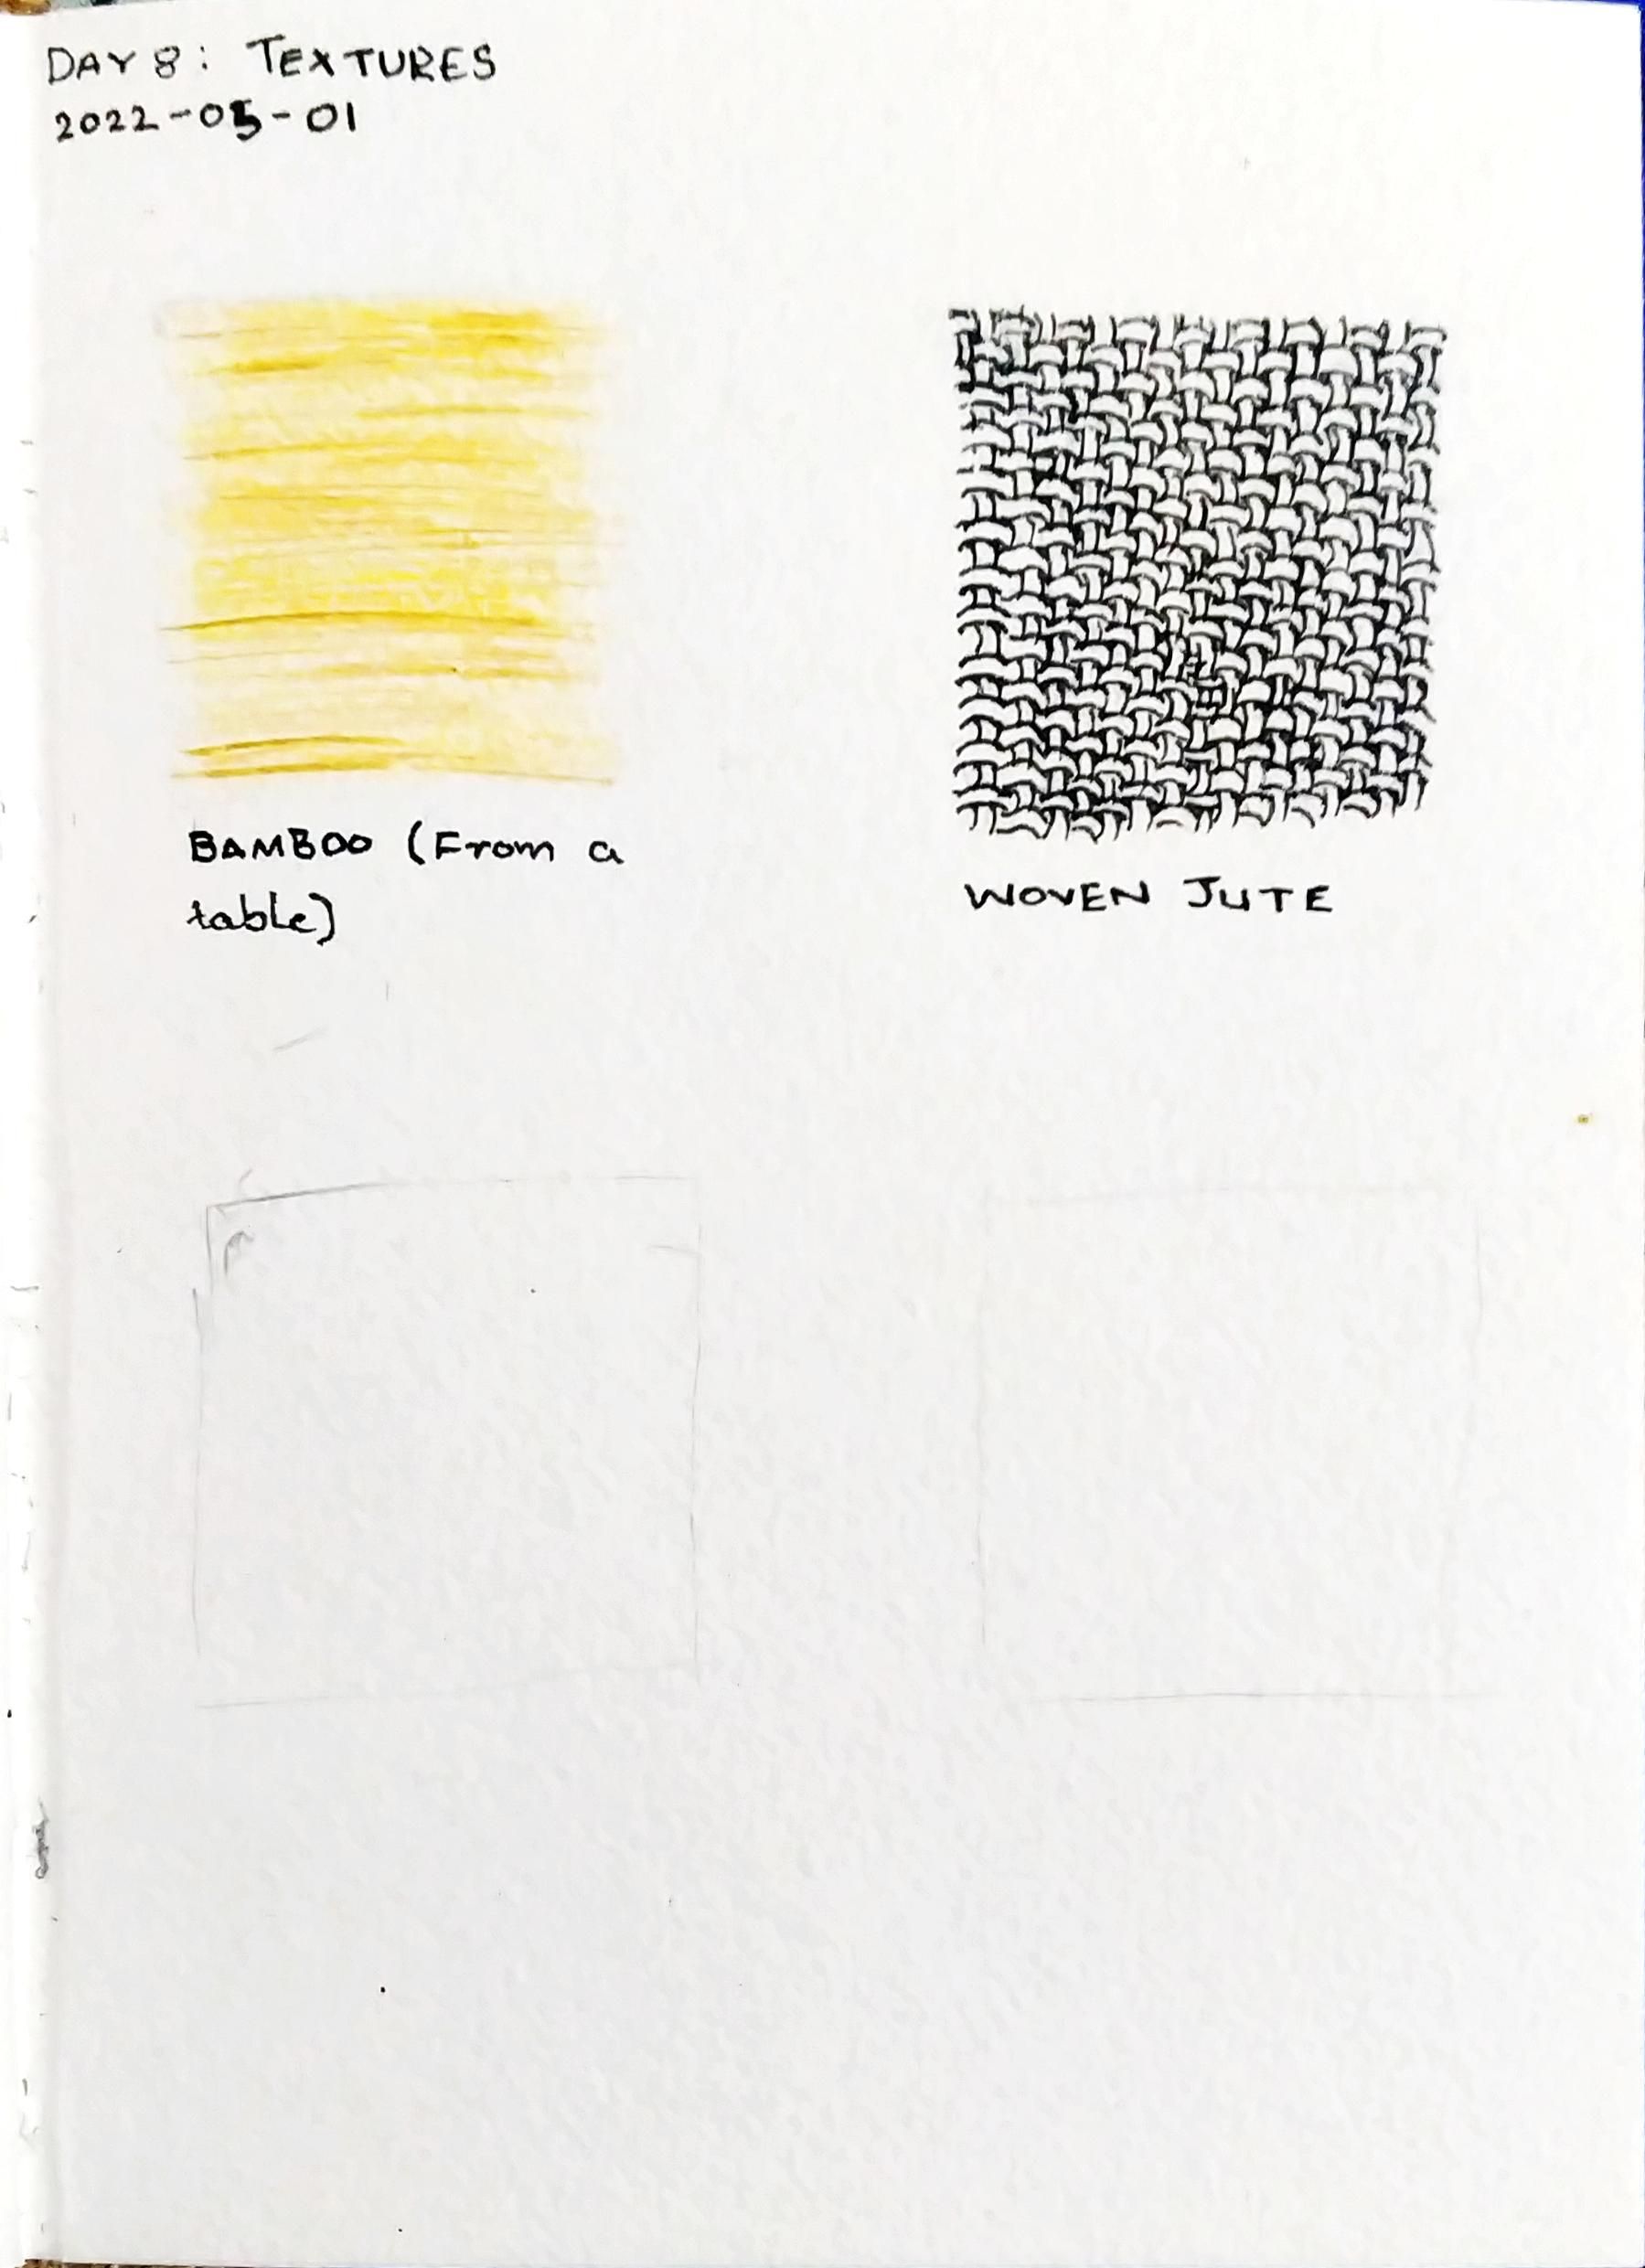 DAY 8: TEXTURES
2022-05-01
BAMBOO (From a
table)
WOVEN JUTE